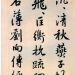 汎清秋燕子故
飛匡衡抗疏功
名薄劉向傳經